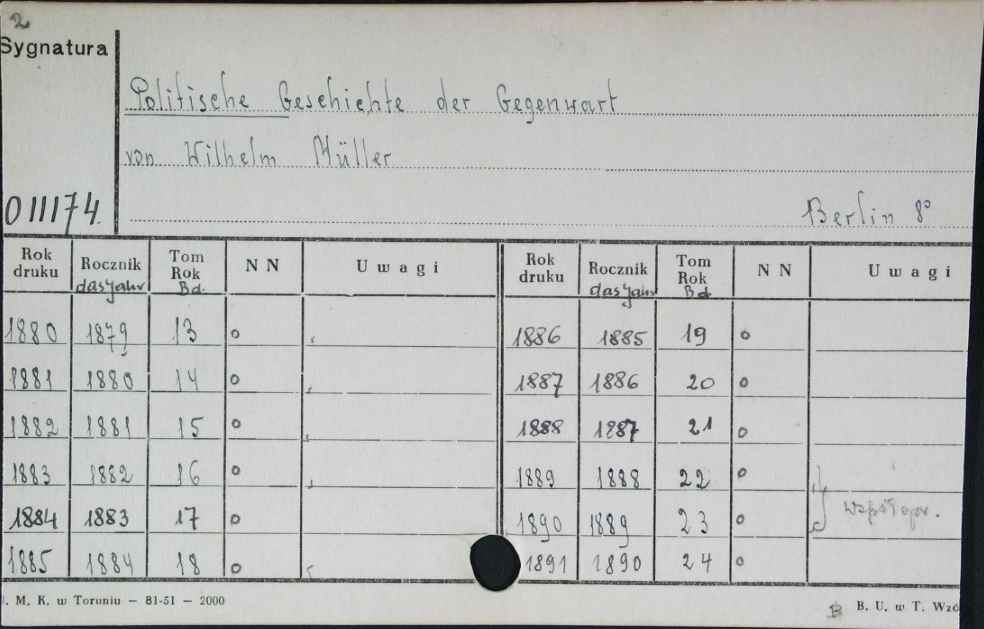 2
Sygnatura
Politische Geschichte der Gegenwart
von Wilhelm Müller
011174.
Berlin 8°
Rok druku Rocznik das Jahr Tom Rok Bd. N N Uwagi Rok druku Rocznik das Jahr Tom Rok Bd. N N Uwagi
1880 1879 13 o 1886 1885 19 o
1881 1880 14 o 1887 1886 20 o
1882 1881 15 o 1888 1887 21 o
1883 1882 16 o 1889 1888 22 o
1884 1883 17 o 1890 1889 23 o współopr.
1885 1884 18 o 1891 1890 24 o
. M. K. w Toruniu — 81-51 — 2000
B. U. w T. Wzó